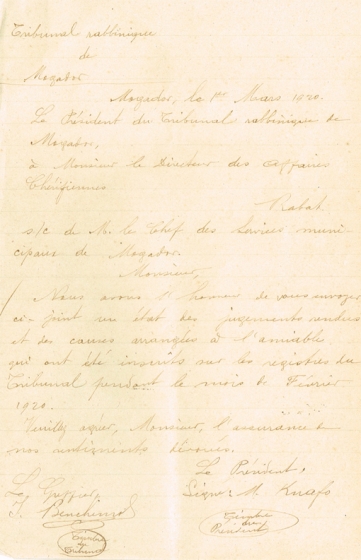 Tribunal rabbinique
de
Mogador
Mogador, le 1er Mars 1920.
Le Président du Tribunal rabbinique de
Mogador,
à Monsieur le Directeur des Affaires
Chérifiennes
Rabat.
s/c de M. le Chef des Services muni-
cipaux de Mogador.
Monsieur,
Nous avons l'honneur de vous envoyer
ci-joint un état des jugements rendus
et des causes arrangées à l'amiable
qui ont été inscrits sur les registres du
Tribunal pendant le mois de Février
1920.
Veuillez agréer, Monsieur, l'assurance de
nos sentiments dévoués.
Le Président,
Le Greffier, Signé: M. Knafo
J.
Timbre du Tribunal
Timbre du Président